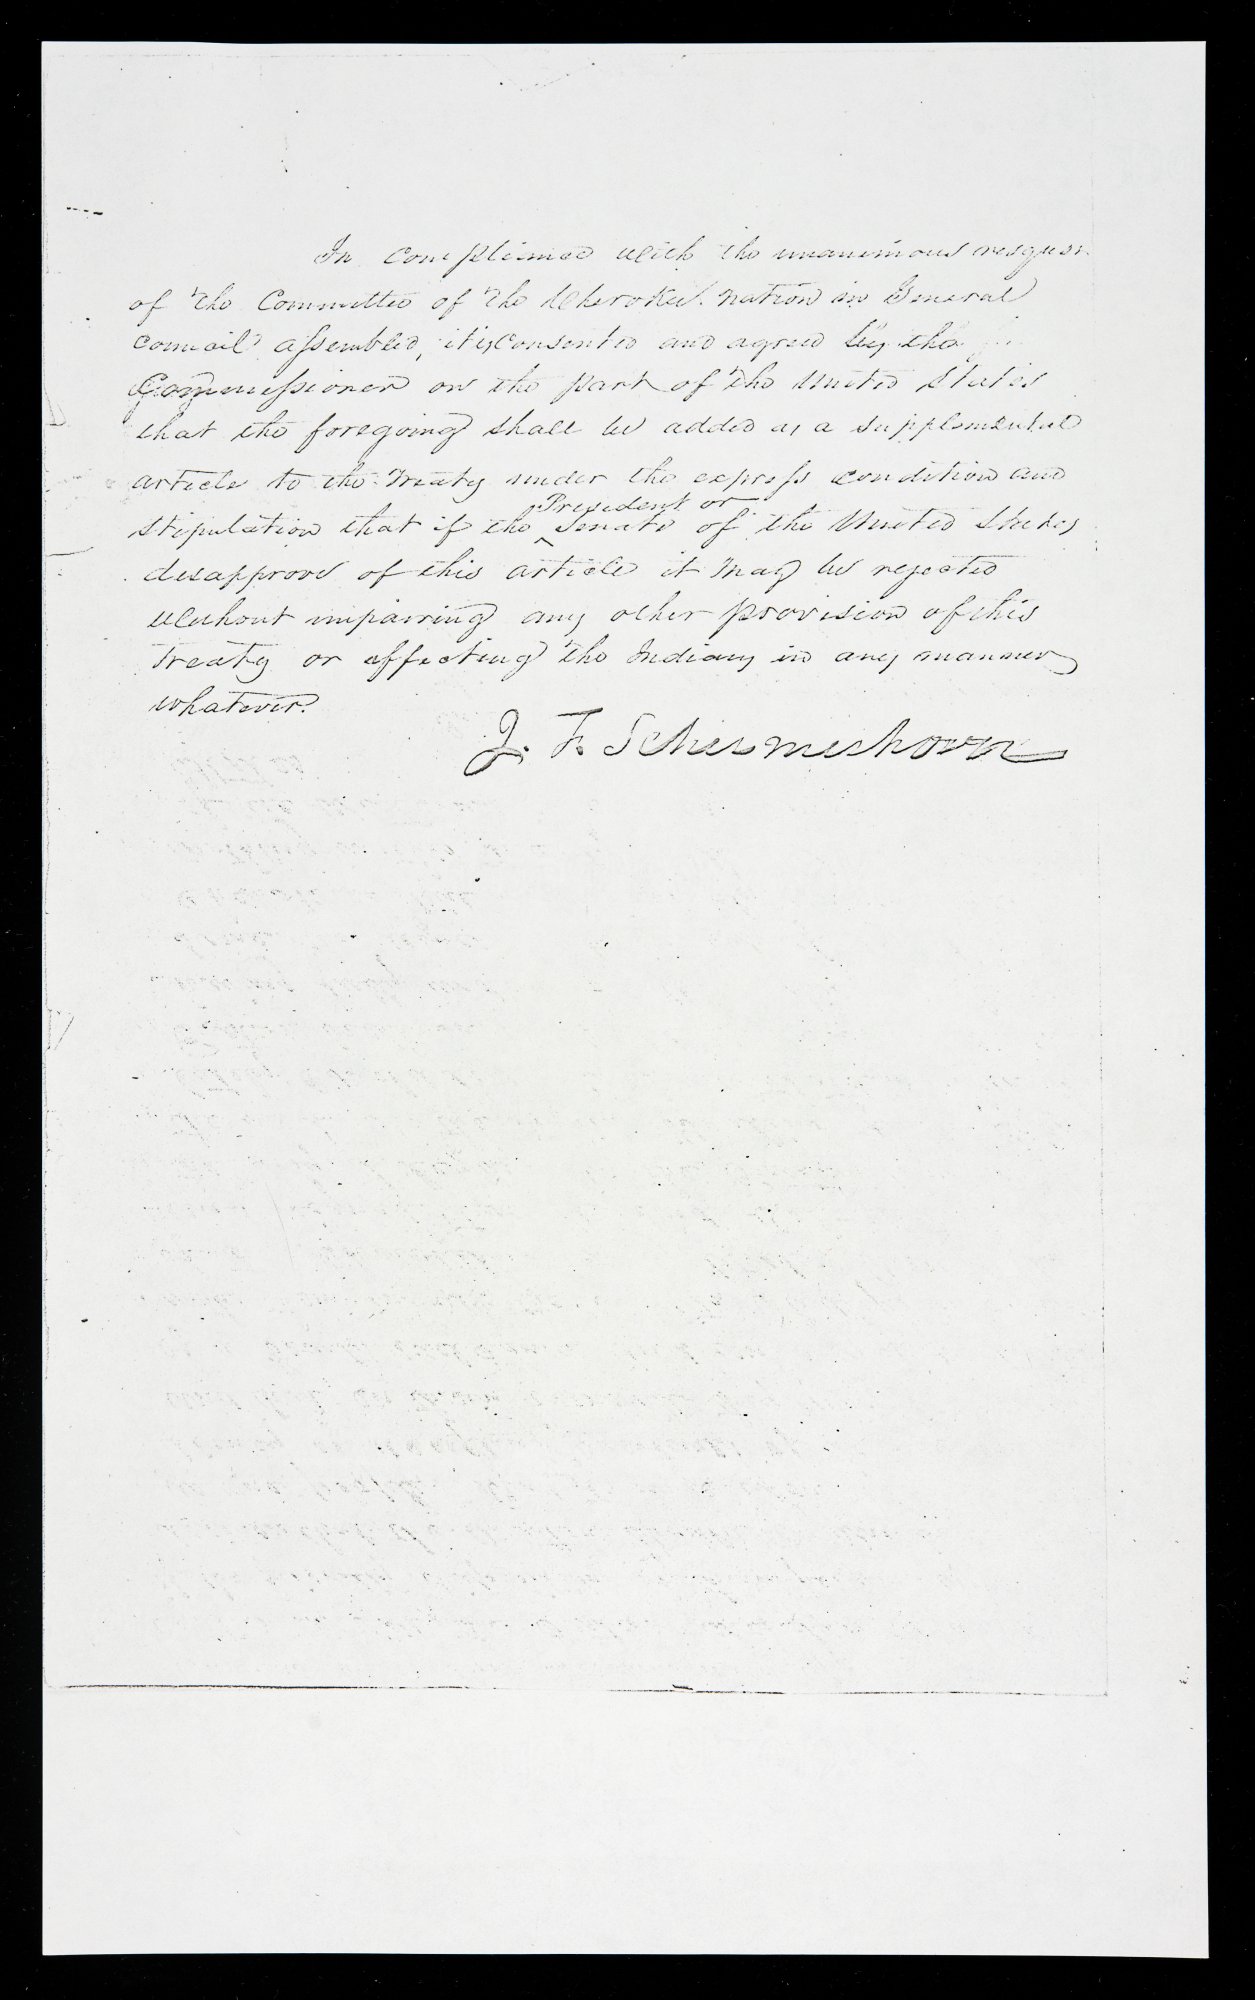 In compliance with the unanimous request
of the Committee of the Cherokee nation in General
council assembled, it is consented and agreed by the
Commissioner on the part of the United States
that the foregoing shall be added as a supplemental
article to the Treaty under the express condition and
stipulation that if the President or Senate of the United States
disapprove of this article it may be rejected
without impairing any other provision of this
treaty or affecting the Indians in any manner
whatever.
J. F. Schermerhorn